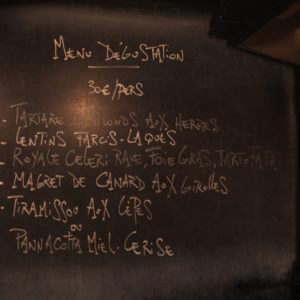 MENU DÉGUSTATION
30€/PERS
- TARTARE AUX HERBES
- LENTINS FARCIS-LAQUÉS
- ROYALE CELERI RAVE, FOIE GRAS,
- MAGRET DE CANARD AUX GIROLLES
- TIRAMISSOU AUX CÈPES
OU
PANNACOTTA MIEL-CERISE